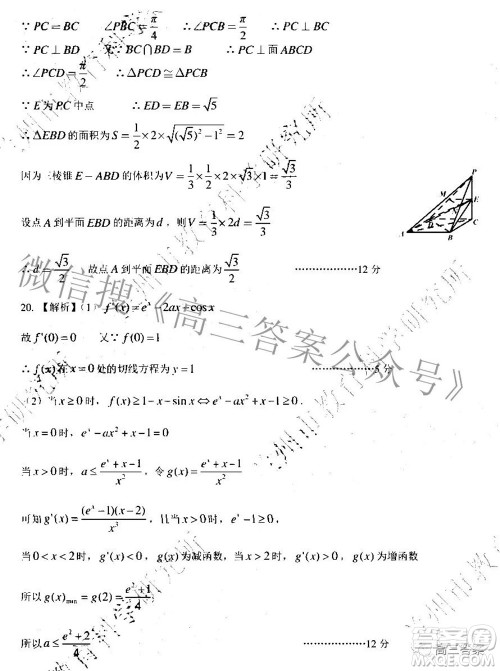 ∵ PC = BC  ∠PBC = π/4  ∴ ∠PCB = π/2
∵ PC ⊥ BD  又∵ BC∩BD = B  ∴ PC ⊥ 面ABCD
∴ ∠PCD = π/2  ∴ △PCD ≅ △PCB
∵ E为PC中点  ∴ ED = EB = √5
∴ △EBD的面积为S = 1/2 × 2 × √((√5)² − 1²) = 2
因为三棱锥E − ABD的体积为V = 1/3 × 1/2 × 2 × √3 × 1 = √3/3
设点A到平面EBD的距离为d，则V = 1/3 × 2d = √3/3
∴ d = √3/2，故点A到平面EBD的距离为√3/2 ··············12分
P
M
E
C
A
B
20. 【解析】(1) f'(x) = eˣ − 2ax + cosx
故f'(0) = 0  又∵ f(0) = 1
∴ f(x)在x = 0处的切线方程为y = 1 ··············5分
(2) 当x ≥ 0时，f(x) ≥ 1 − x − sinx ⇔ eˣ − ax² + x − 1 ≥ 0.
当x = 0时，eˣ − ax² + x − 1 = 0
当x > 0时，a ≤ (eˣ + x − 1)/x²，令g(x) = (eˣ + x − 1)/x²
可知g'(x) = (eˣ − 1)(x − 2)/x³，
当0 < x < 2时，g'(x) < 0，g(x)为减函数，当x > 2时，g'(x) > 0，g(x)为增函数
所以g(x)min = g(2) = (e² + 1)/4
所以a ≤ (e² + 2)/4 ··············12分
微信搜《高三答案公众号》
州市教育科学研究所
高三答案